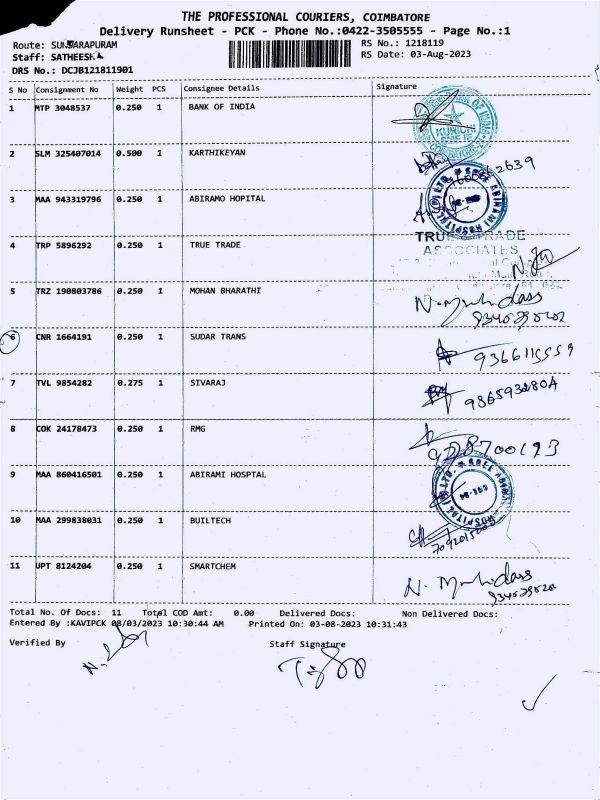 THE PROFESSIONAL COURIERS, COIMBATORE
Delivery Runsheet - PCK - Phone No.:0422-3505555 - Page No.:1
Route: SUNDARAPURAM RS No.: 1218119
Staff: SATHEESKA RS Date: 03-Aug-2023
DRS No.: DCJB121811901
S No Consignment No Weight PCS Consignee Details Signature
1 MTP 3048537 0.250 1 BANK OF INDIA
KURICHI
2 SLM 325407014 0.500 1 KARTHIKEYAN
3 MAA 943319796 0.250 1 ABIRAMO HOPITAL
4 TRP 5896292 0.250 1 TRUE TRADE
TRUE TRADE
ASSOCIATES
5 TRZ 190803786 0.250 1 MOHAN BHARATHI
6 CNR 1664191 0.250 1 SUDAR TRANS
9366115559
7 TVL 9854282 0.275 1 SIVARAJ
8 COK 24178473 0.250 1 RMG
9 MAA 860416501 0.250 1 ABIRAMI HOSPTAL
10 MAA 299838031 0.250 1 BUILTECH
11 UPT 8124204 0.250 1 SMARTCHEM
Total No. Of Docs: 11 Total COD Amt: 0.00 Delivered Docs: Non Delivered Docs:
Entered By :KAVIPCK 08/03/2023 10:30:44 AM Printed On: 03-08-2023 10:31:43
Verified By Staff Signature